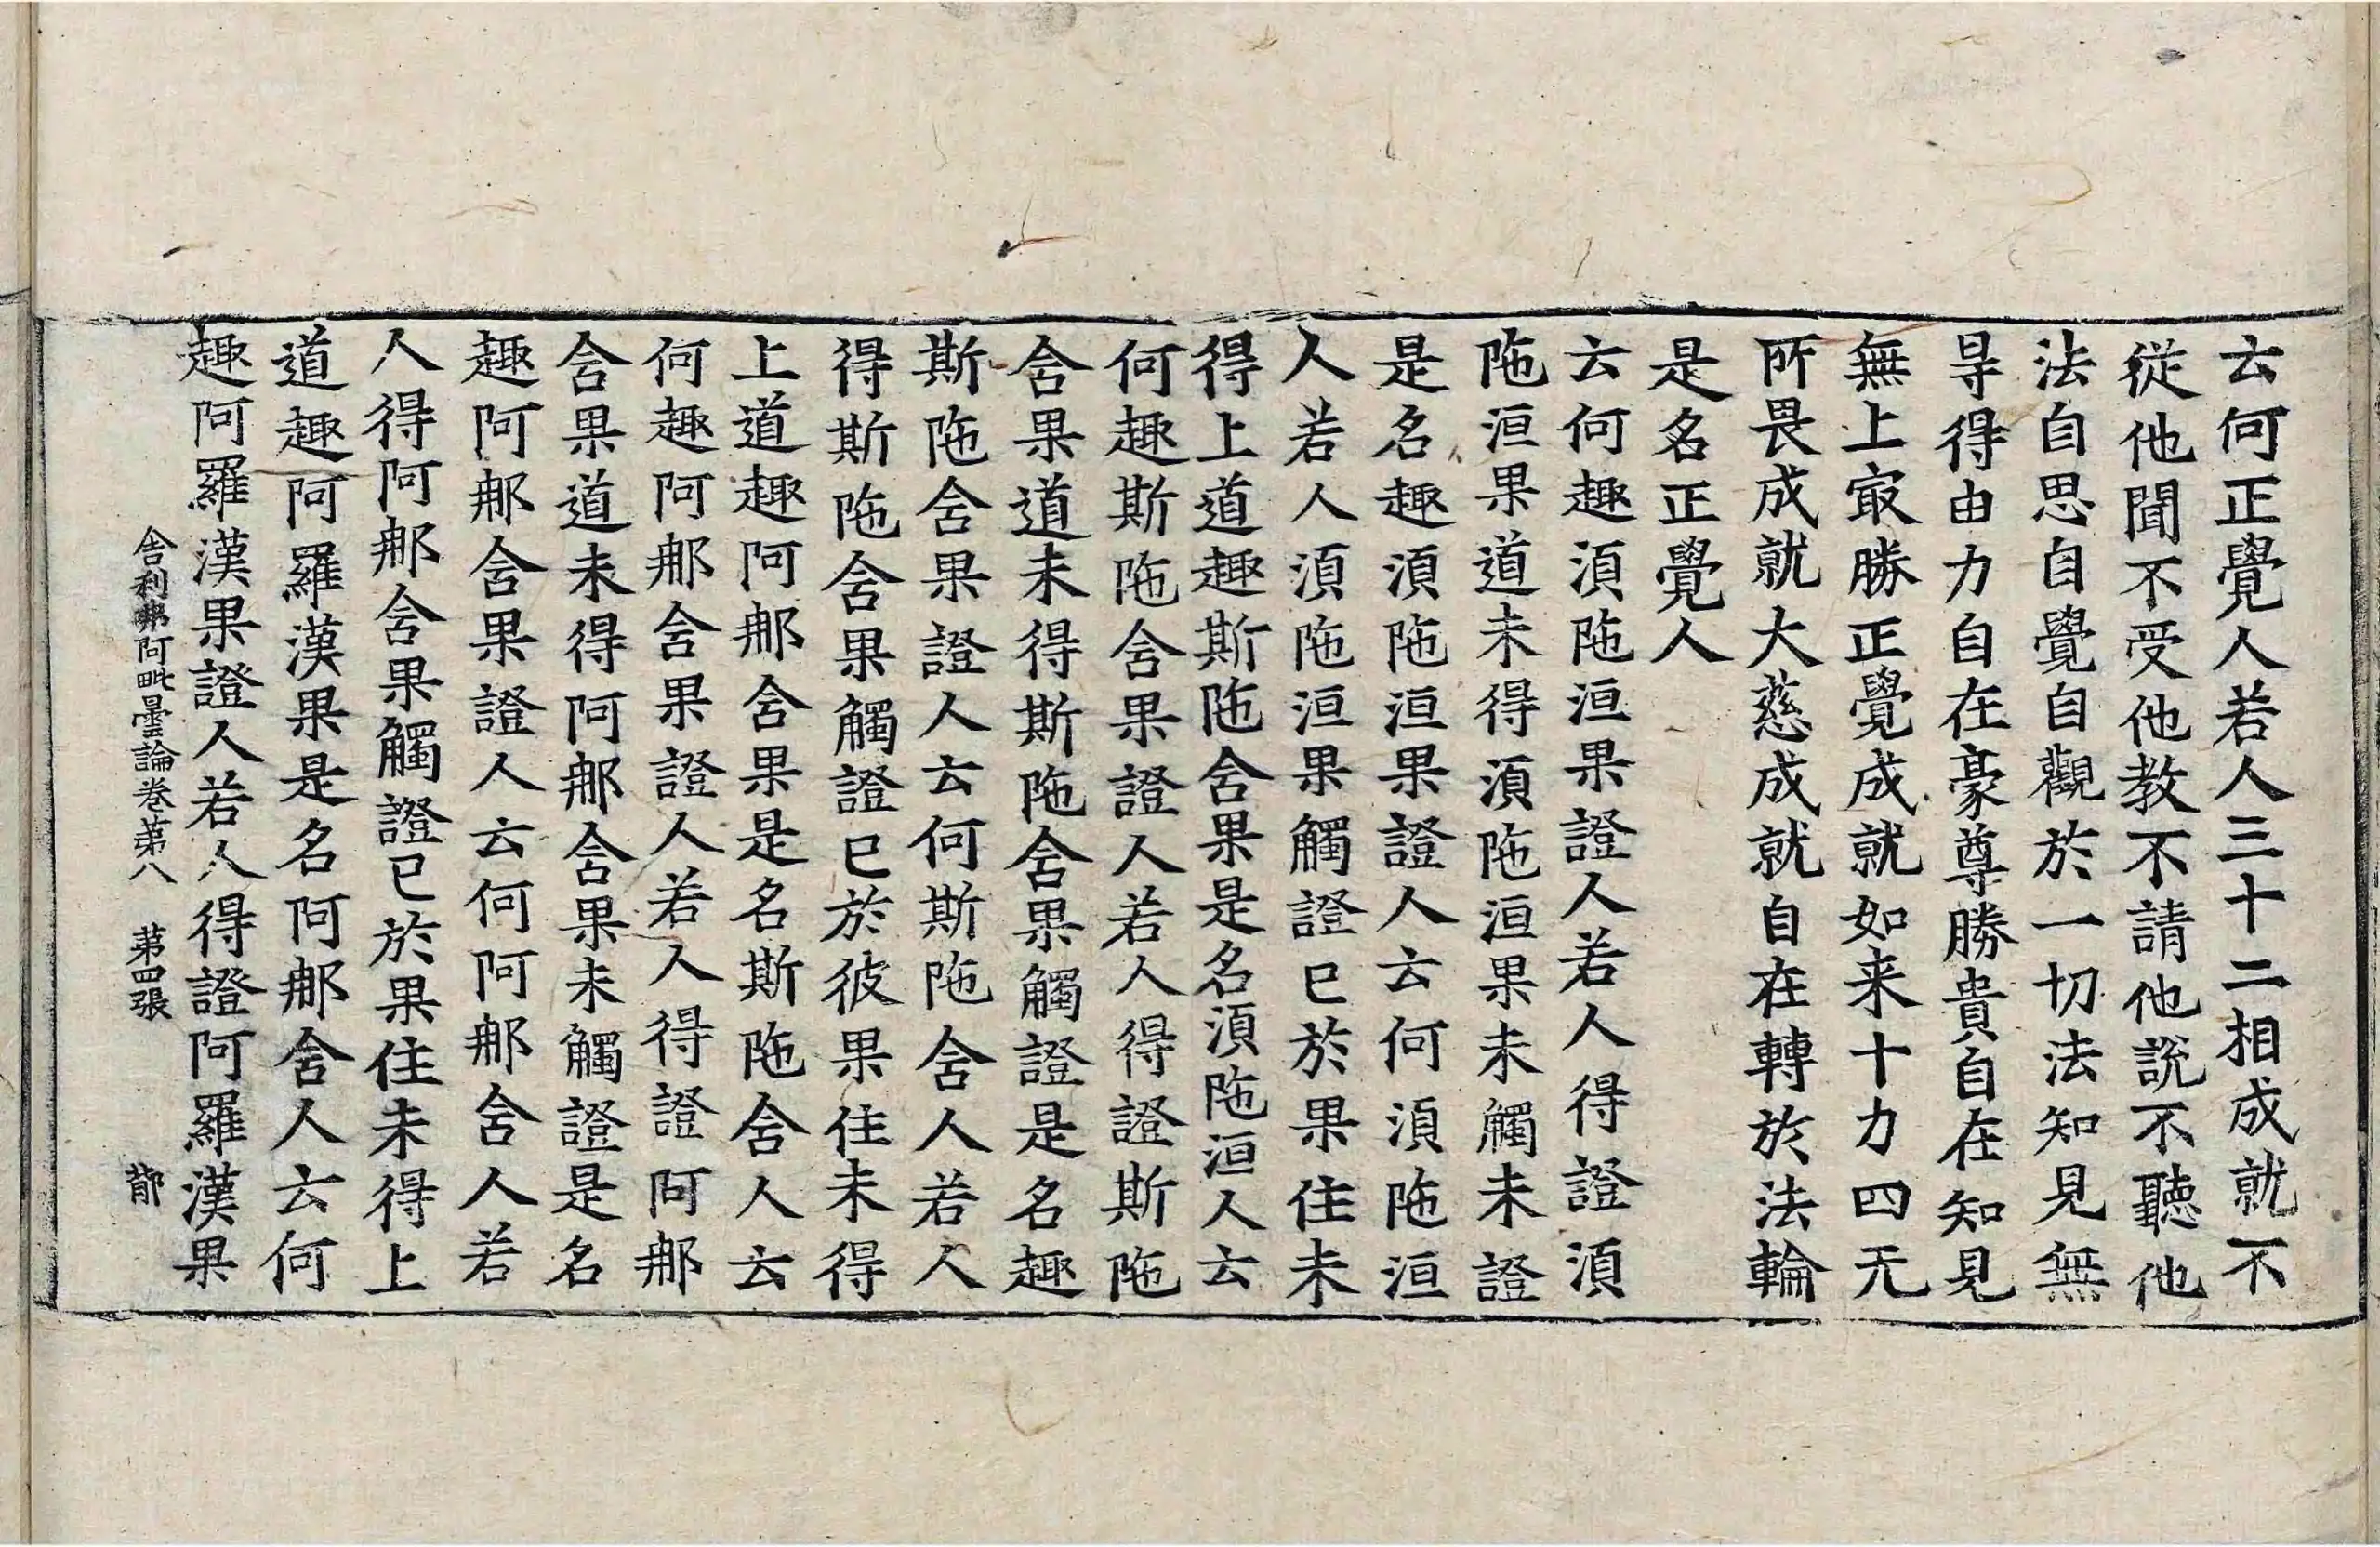 云何正覺人若人三十二相成就不
從他聞不受他教不請他說不聽他
法自思自覺自觀於一切法知見無
㝵得由力自在豪尊勝貴自在知見
無上㝡勝正覺成就如来十力四无
所畏成就大慈成就自在轉於法輪
是名正覺人
云何趣湏陁洹果證人若人得證湏
陁洹果道未得湏陁洹果未觸未證
是名趣湏陁洹果證人云何湏陁洹
人若人湏陁洹果觸證已於果住未
得上道趣斯陁舍果是名湏陁洹人云
何趣斯陁舍果證人若人得證斯陁
舍果道未得斯陁舍果觸證是名趣
斯陁舍果證人云何斯陁舍人若人
得斯陁舍果觸證已於彼果住未得
上道趣阿郍舍果是名斯陁舍人云
何趣阿郍舍果證人若人得證阿郍
舍果道未得阿郍舍果未觸證是名
趣阿郍舍果證人云何阿郍舍人若
人得阿郍舍果觸證已於果住未得上
道趣阿羅漢果是名阿郍舍人云何
趣阿羅漢果證人若人得證阿羅漢果
舍利弗阿毗曇論卷第八 第四張